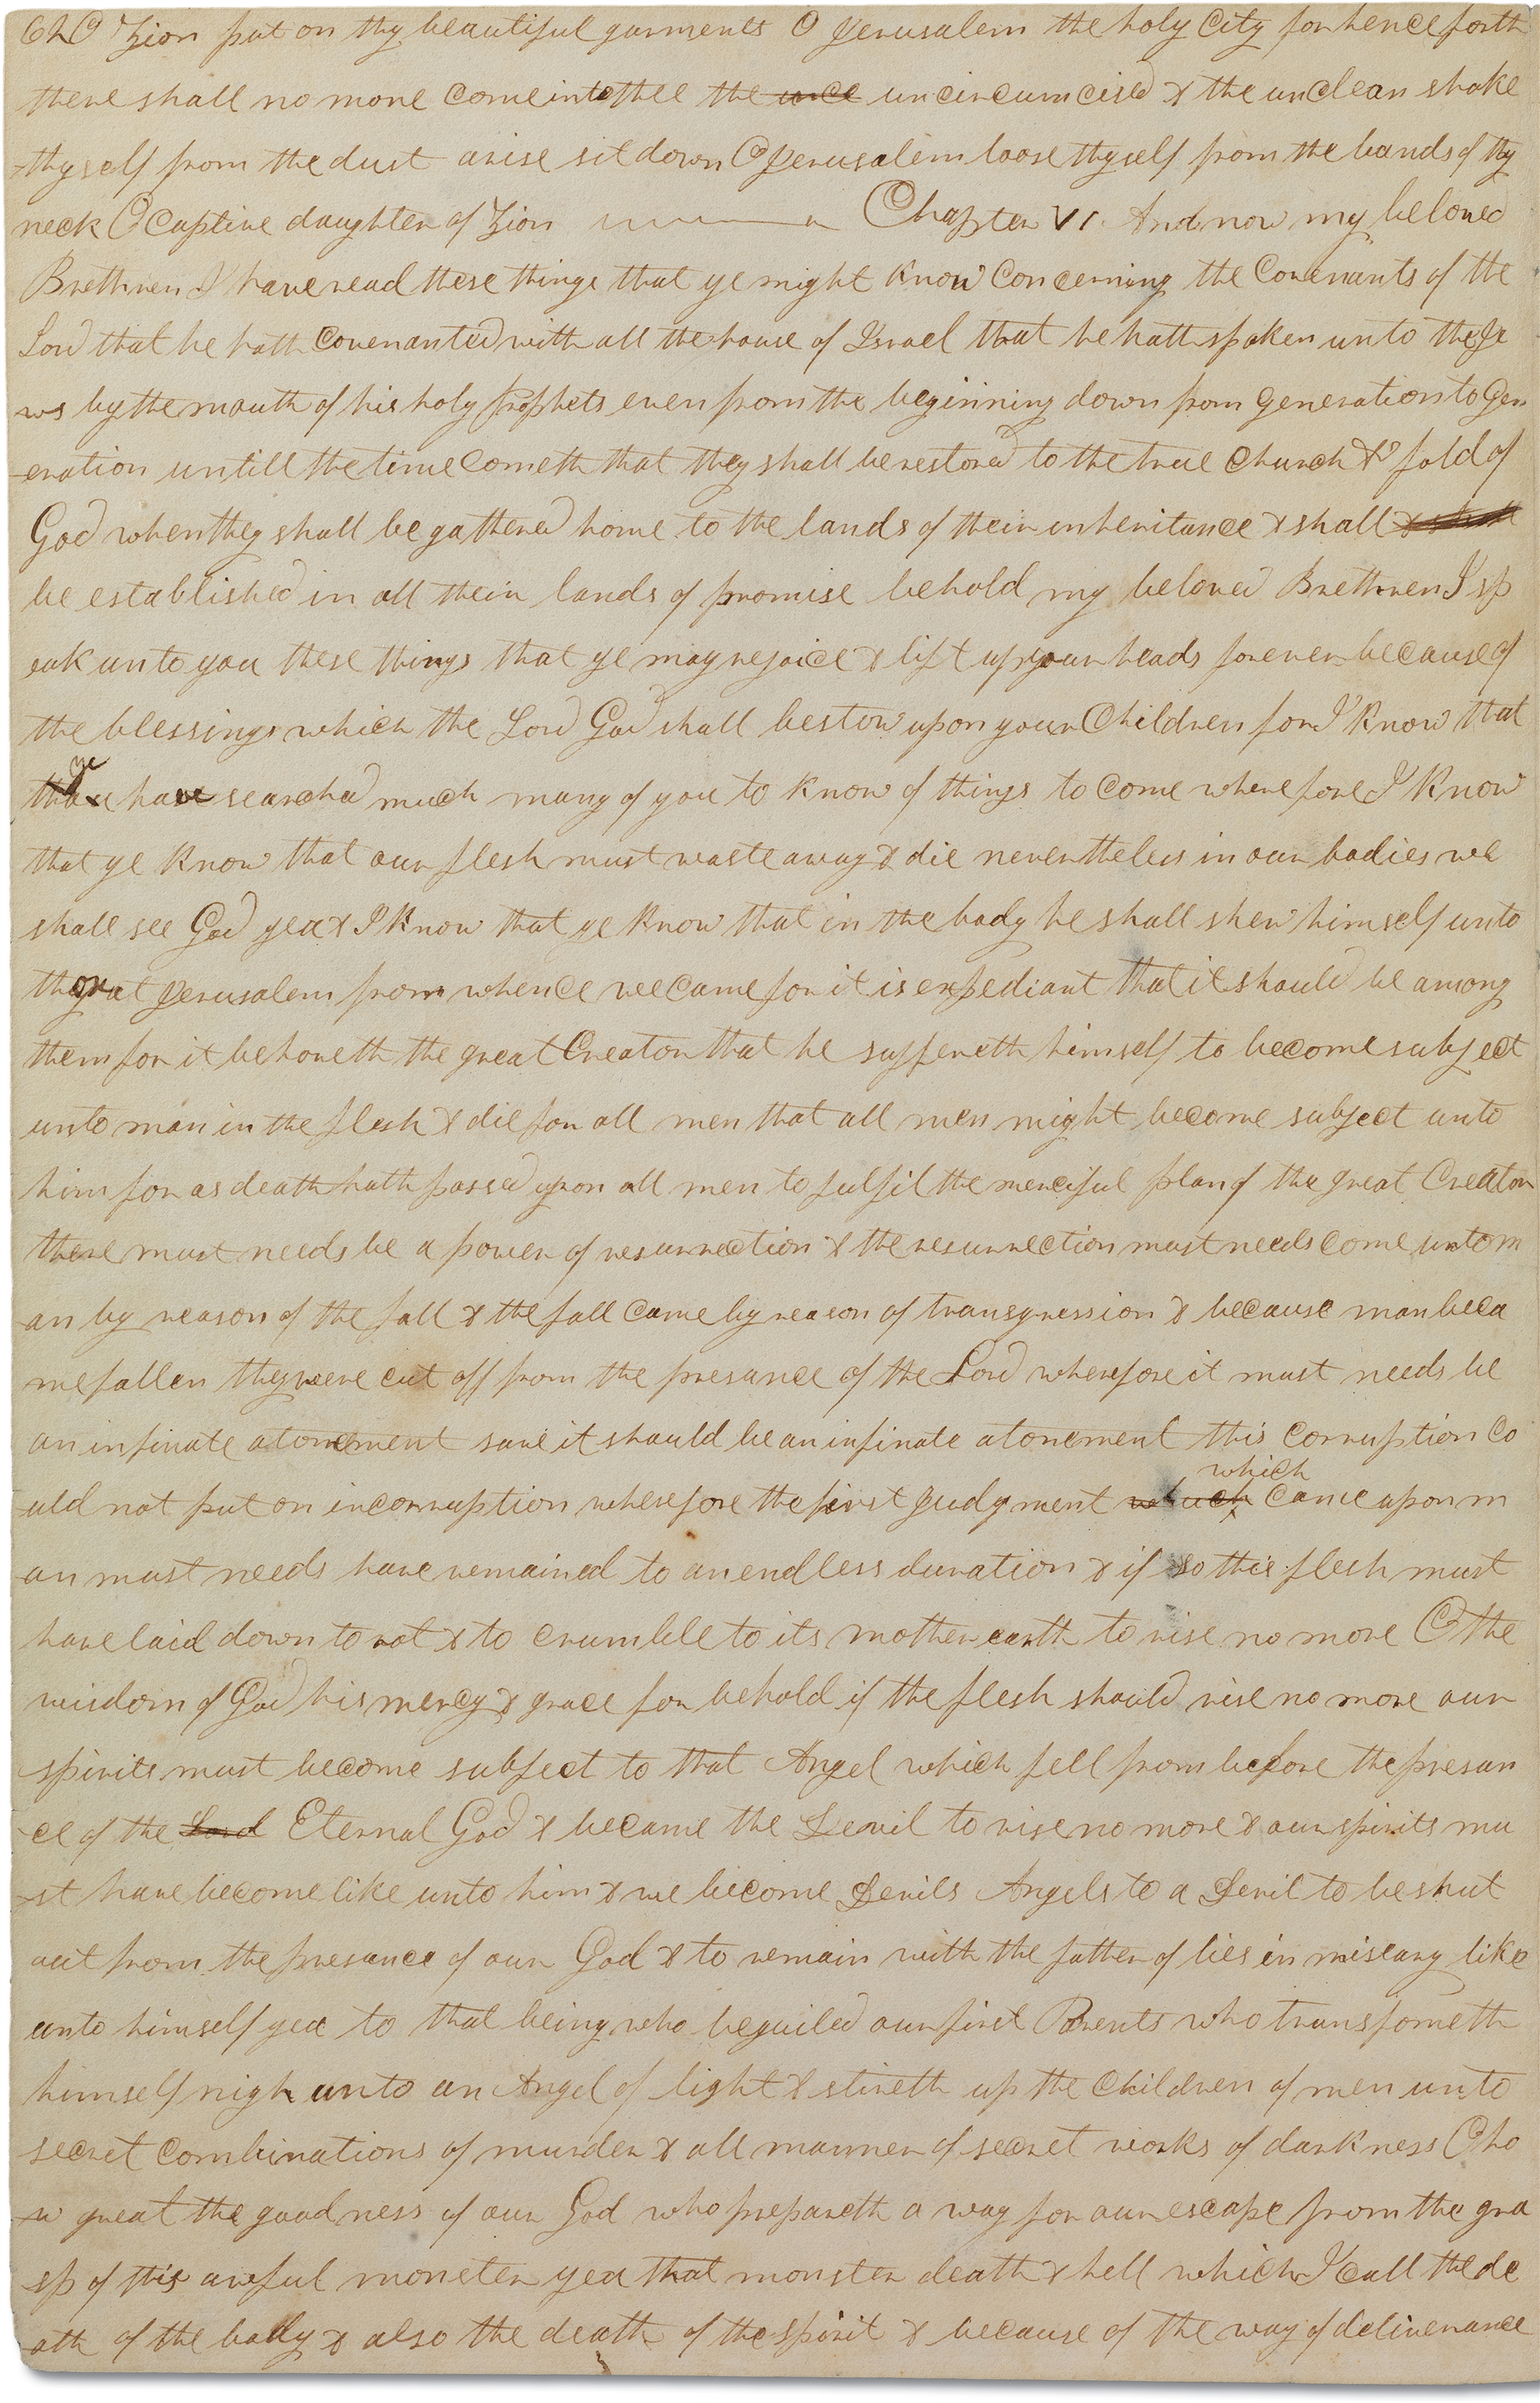 62 O Zion put on thy beautiful garments O Jerusalem the holy City for hence forth
there shall no more come into thee the unce uncircumcised & the unclean shake
thyself from the dust arise sit down O Jerusalem loose thyself from the bands of thy
neck O Captive daughter of Zion Chapter VI. And now my beloved
Brethren I have read these things that ye might know Concerning the Covenants of the
Lord that he hath Covenanted with all the house of Israel that he hath spoken unto the Je
ws by the mouth of his holy prophets even from the beginning down from generation to gen
eration untill the time Cometh that they shall be restored to the true Church & fold of
God when they shall be gathered home to the lands of their inheritance & shall & shall
be established in all their lands of promise behold my beloved Brethren I sp
eak unto you these things that ye may rejoice & lift up your heads forever because of
the blessings which the Lord God shall bestow upon your Children for I know that
ye
have searched much many of you to know of things to Come wherefore I know
that ye know that our flesh must waste away & die nevertheless in our bodies we
shall see God yea & I know that ye know that in the body he shall shew himself unto
those at Jerusalem from whence we came for it is expediant that it should be among
them for it behoveth the great Creator that he suffereth himself to become subject
unto man in the flesh & die for all men that all men might become subject unto
him for as death hath passed upon all men to fulfil the merciful plan of the great Creator
there must needs be a power of resurrection & the resurrection must needs come unto m
an by reason of the fall & the fall came by reason of transgression & because man beca
me fallen they were cut off from the presance of the Lord wherefore it must needs be
an infinate atonement save it should be an infinate atonement this corruption Co
uld not put on incorruption wherefore the first Judgment which came upon m
which
an must needs have remained to an endless duration & if so this flesh must
have laid down to rot & to crumble to its mother earth to rise no more O the
wisdom of God his mercy & grace for behold if the flesh should rise no more our
spirits must become subject to that Angel which fell from before the presan
ce of the Lord Eternal God & became the Devil to rise no more & our spirits mu
st have become like unto him & we become Devils Angels to a Devil to be shut
out from the presance of our God & to remain with the father of lies in misary like
unto himself yea to that being who beguiled our first Parents who transfometh
himself nigh unto an Angel of light & stireth up the Children of men unto
secret Combinations of murder & all manner of secret works of darkness O ho
w great the goodness of our God who prepareth a way for our escape from the gra
sp of this awful monster yea that monster death & hell which I Call the de
ath of the body & also the death of the spirit & because of the way of deliverance